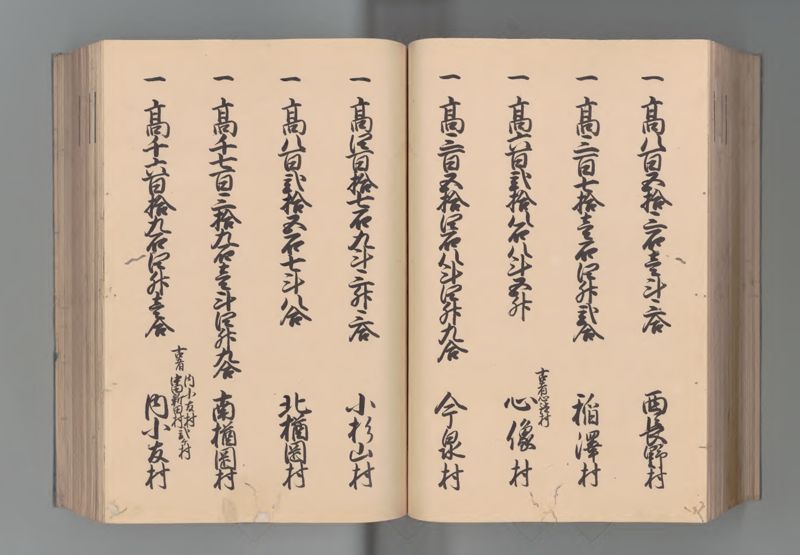 一 高八百五拾三石壱斗三合 西長野村
一 高三百七拾壱石四升弐合 稲澤村
一 高六百弐拾八石八斗五升 心像村
一 高三百五拾四石八斗四升九合 今泉村
一 高四百拾七石九斗三升三合 小杉山村
一 高八百弐拾五石七斗八合 北楢岡村
一 高千七百三拾九石壱斗四升九合 南楢岡村
古者 内小友村
新田村弐ヶ村
一 高千六百拾九石四升壱合 内小友村